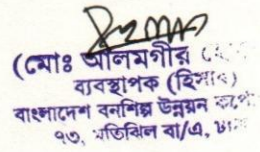 (মোঃ আলমগীর
ব্যবস্থাপক (হিসাব)
বাংলাদেশ বনশিল্প উন্নয়ন কর্পো
৭৩, মতিঝিল বা/এ,